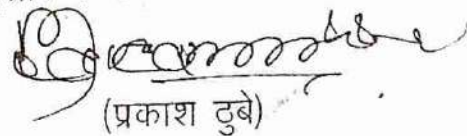 (प्रकाश दुबे)